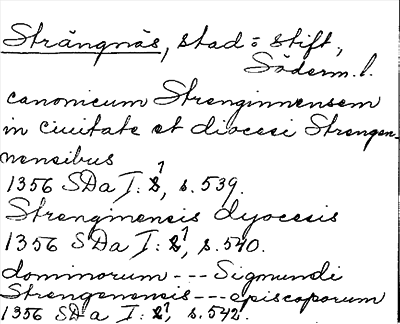 Strängnäs, stad = stift,
Söderm. l.
canonicum Strenginnensem
in ciuitate et diocesi Strengen-
nensibus
1356 SDa I: 1, s. 539.
Strenginensis dyocesis
1356 SDa I: 1, s. 540.
dominorum --- Sigmundi
Strengenensis --- episcoporum
1356 SDa I: 1, s. 542.